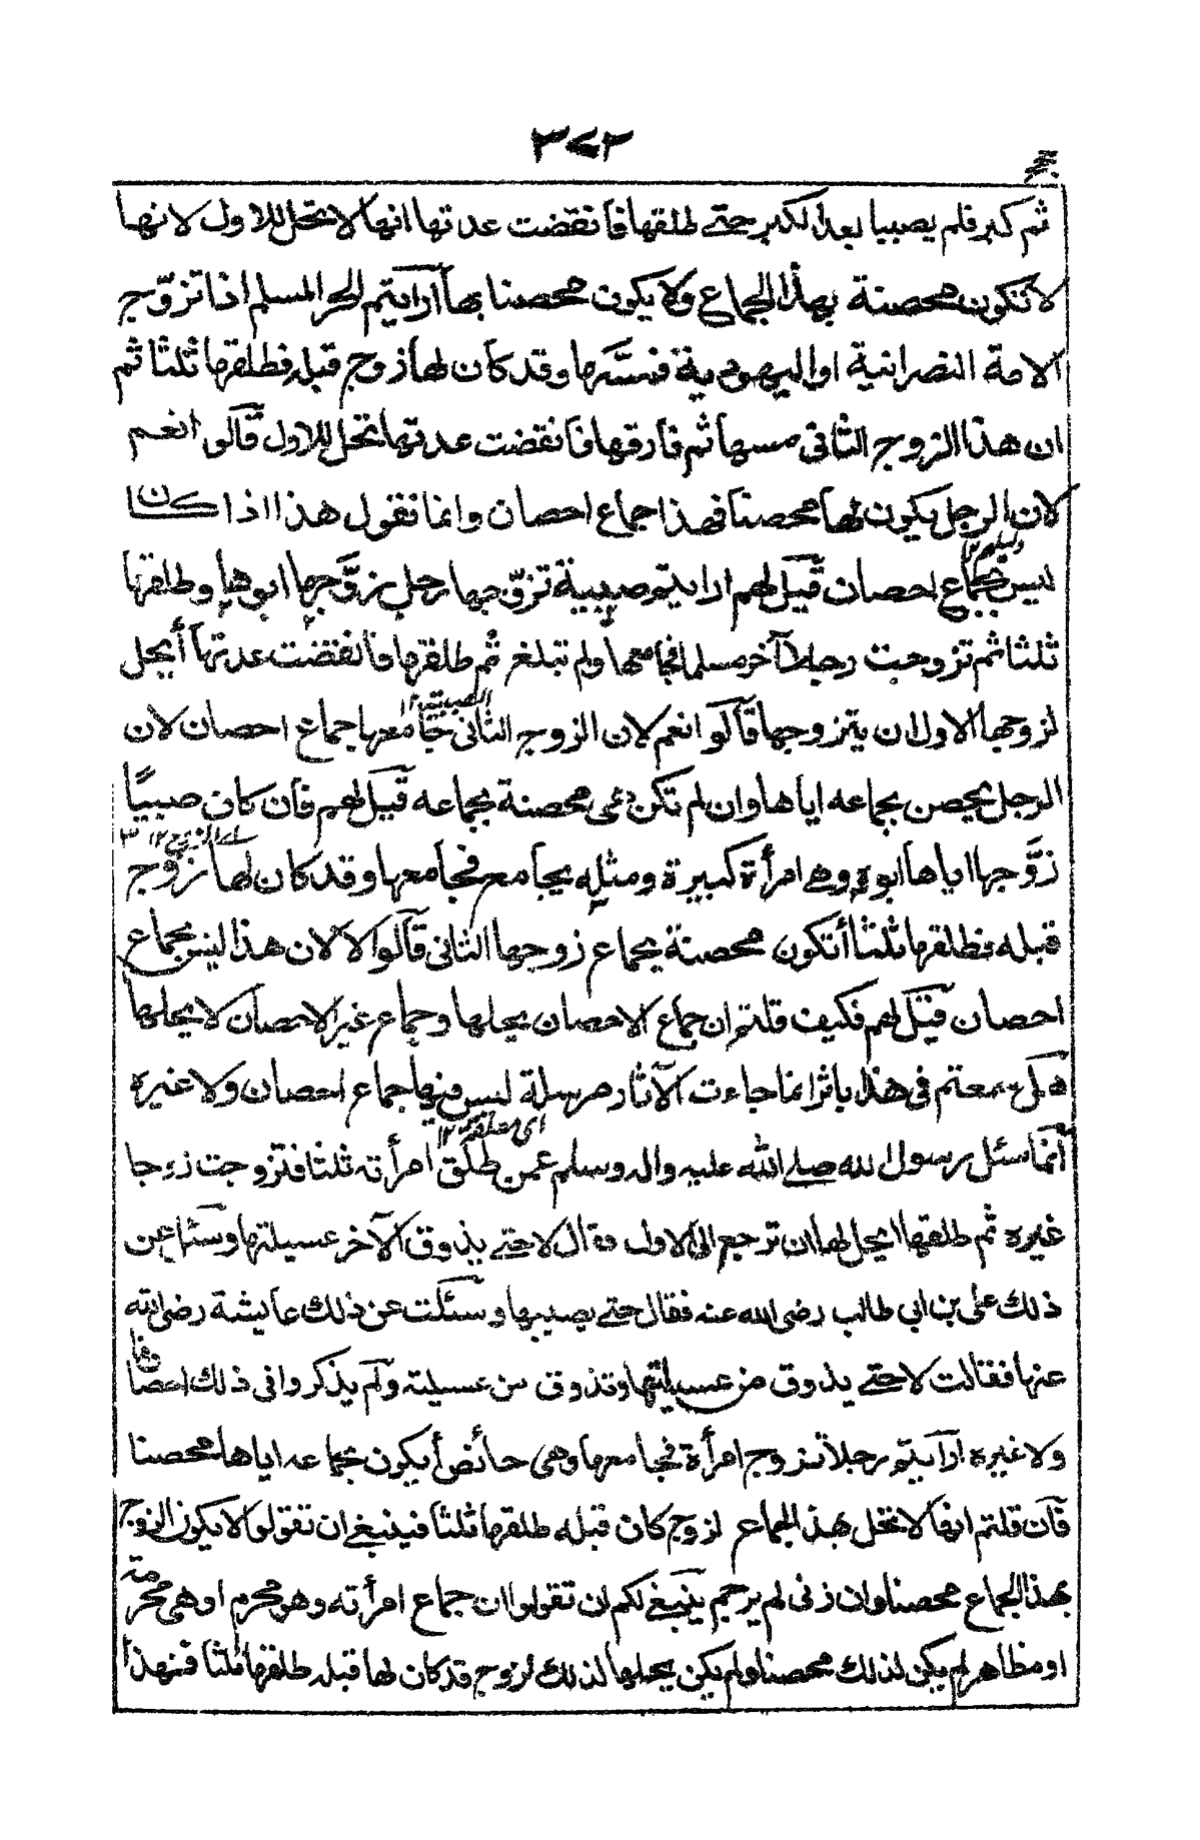 ٣٧٢
ثم كبر فلم يصبيا بعد الكبر حتے طلقها فانقضت عدتها انها لا تحل للاول لانها
لا تكون محصنة بهذا الجماع ولا يكون محصنا بها أرايتم الحر المسلم اذا تزوّج
الامة النصرانية او اليهودية فمسّها وقد كان لها زوج قبله فطلقها ثلثا ثم
ان هذا الزوج الثانى مسها ثم فارقها فانقضت عدتها تحل للاول قالوا نعم
لان الرجل يكون بها محصنا فهذا جماع احصان وانما نقول هذا اذا كان
ليس بجماع احصان قيل لهم ارايتم صبية تزوّجها رجل زوّجها ابوها وطلقها
ثلثا ثم تزوجت رجلا آخر مسلما فجامعها ولم تبلغ ثم طلقها فانقضت عدتها أيحل
الصبية ١٢
لزوجها الاول ان يتزوجها قالوا نعم لان الزوج الثانى جامعها جماع احصان لان
الرجل يحصن بجماعه اياها وان لم تكن هى محصنة بجماعه قيل لهم فان كان صبيًا
زوّجها اياها ابوه وهے امرأة كبيرة ومثله يجامع فجامعها وقد كان لها زوج
قبله فطلقها ثلثا أتكون محصنة بجماع زوجها الثانى قالوا لا لان هذا ليس بجماع
احصان قيل لهم فكيف قلتم ان جماع الاحصان يحلها وجماع غير الاحصان لا يحلها
هل سمعتم فى هذا باثر انما جاءت الآثار مرسلة ليس فيها جماع احصان ولا غيره
اى مطلقة ١٢
انما سئل رسول الله صلے الله عليه واله وسلم عمن طلق امرأته ثلثا فتزوجت زوجا
غيره ثم طلقها ايحل لها ان ترجع الى الاول فقال لا حتے يذوق الآخر عسيلتها وسئل عن
ذلك على بن ابي طالب رضى الله عنه فقال حتے يصيبها وسئلت عن ذلك عايشة رضى الله
عنها فقالت لا حتے يذوق من عسيلتها وتذوق من عسيلته ولم يذكروا فى ذلك احصانا
ولا غيره ارايتم رجلا تزوج امرأة فجامعها وهى حائض أيكون بجماعه اياها محصنا
فان قلتم انها لا تحل بهذا الجماع لزوج كان قبله طلقها ثلثا فينبغے ان تقولوا لا يكون الزوج
بهذا الجماع محصنا وان زنى لم يرجم ينبغے لكم ان تقولوا ان جماع امرأته وهو محرم او هى محرمة
او مظاهر لم يكن لذلك محصنا ولم يكن يحلها لذلك لزوج قد كان لها قبله طلقها ثلثا فهذا